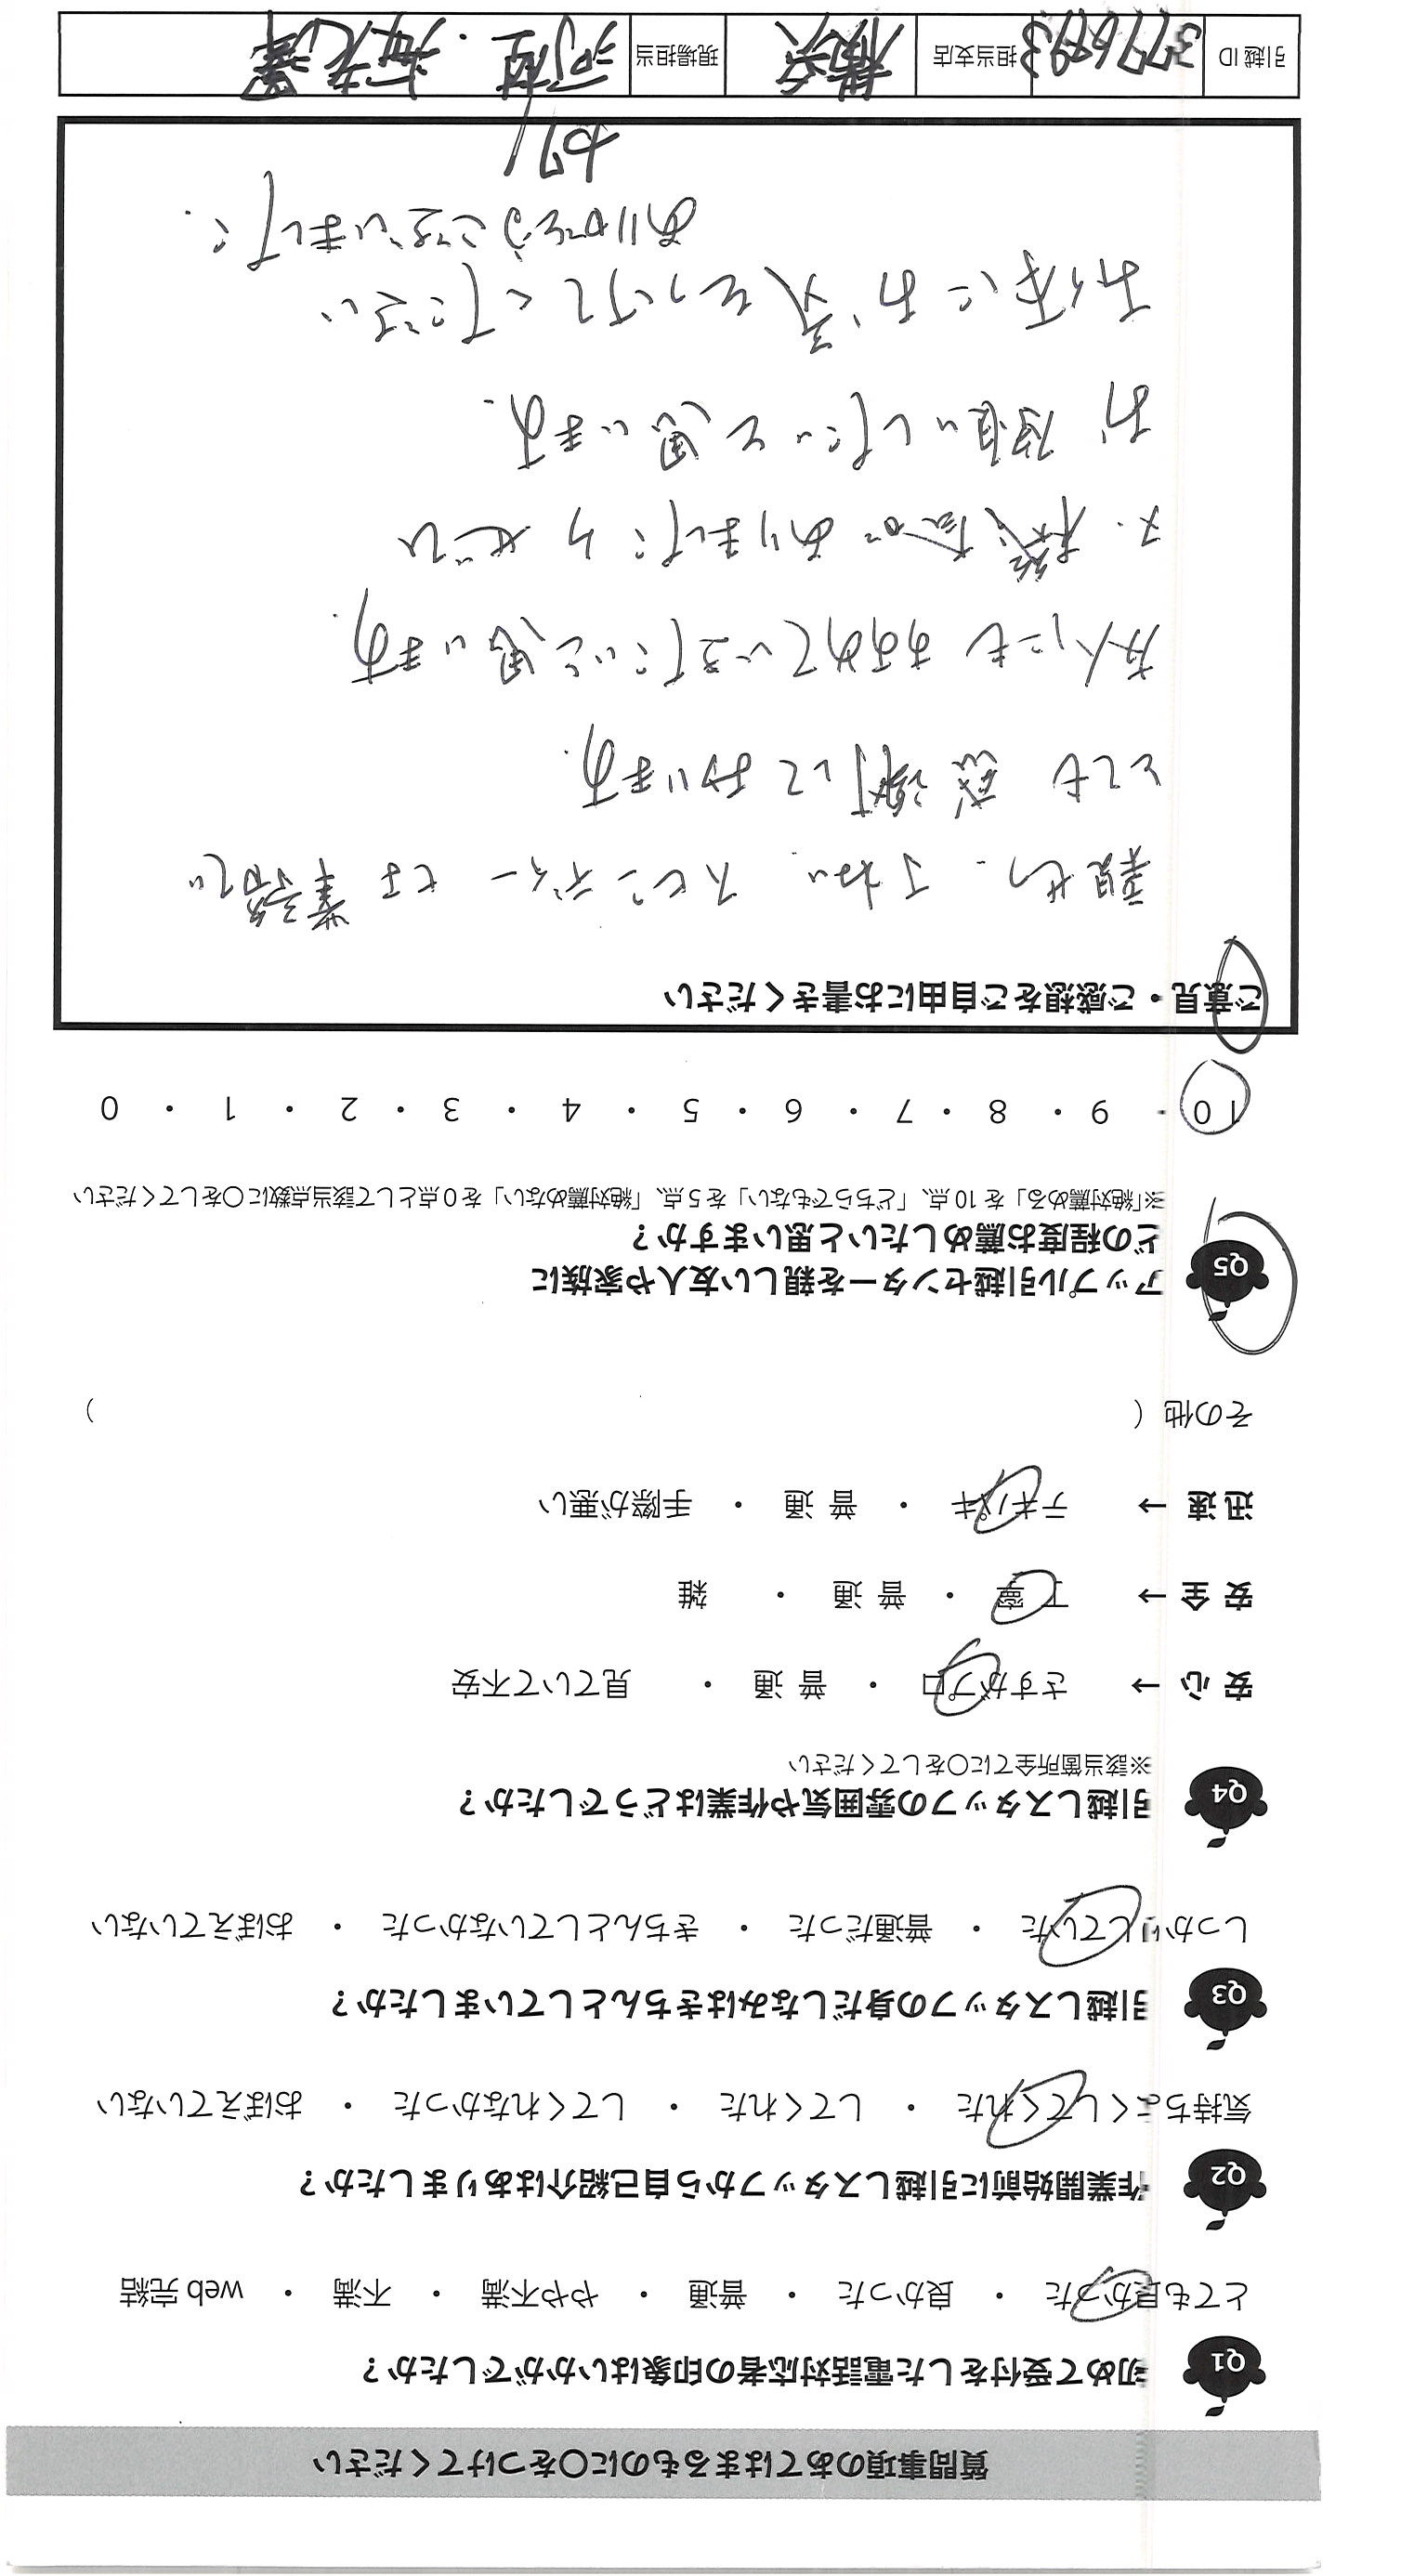 質問事項のあてはまるものに〇をつけてください
Q1 初めて受付をした電話対応者の印象はいかがでしたか？
とても良かった ・ 良かった ・ 普通 ・ やや不満 ・ 不満 ・ web 完結
Q2 作業開始前に引越しスタッフから自己紹介はありましたか？
気持ちよくしてくれた ・ してくれた ・ してくれなかった ・ おぼえていない
Q3 引越しスタッフの身だしなみはきちんとしていましたか？
しっかりしていた ・ 普通だった ・ きちんとしていなかった ・ おぼえていない
Q4 引越しスタッフの雰囲気や作業はどうでしたか？
※該当箇所全てに〇をしてください
安 心 → さすがプロ ・ 普 通 ・ 見ていて不安
安 全 → 丁 寧 ・ 普 通 ・ 雑
迅 速 → テキパキ ・ 普 通 ・ 手際が悪い
その他 ( )
Q5 アップル引越センターを親しい友人や家族に
どの程度お薦めしたいと思いますか？
※「絶対薦める」を 10 点、「どちらでもない」を 5 点、「絶対薦めない」を 0 点として該当点数に〇をしてください
10 ・ 9 ・ 8 ・ 7 ・ 6 ・ 5 ・ 4 ・ 3 ・ 2 ・ 1 ・ 0
ご意見・ご感想をご自由にお書きください
親せつ、丁ねい、スピーディー
とても 感謝しております。
友人にも すすめていきたいと思います。
又、機会が ありましたら ぜひ
お願いしたいと思います。
お体に お気をつけてください
ありがとうございました。
引越 ID 3776693 担当支店 横浜 現場担当